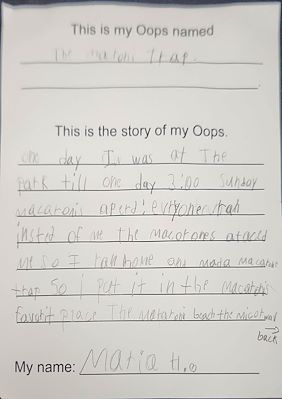 This is my Oops named
The Trap
This is the story of my Oops.
one day I was at The
park till one day 3:00 Sunday
macaronis
insted of me The macorones ataced
me so I home and mada macaroni
trap So i put it in the macaronis
favorit place The Macaroni beach the
back
My name: Maria H.